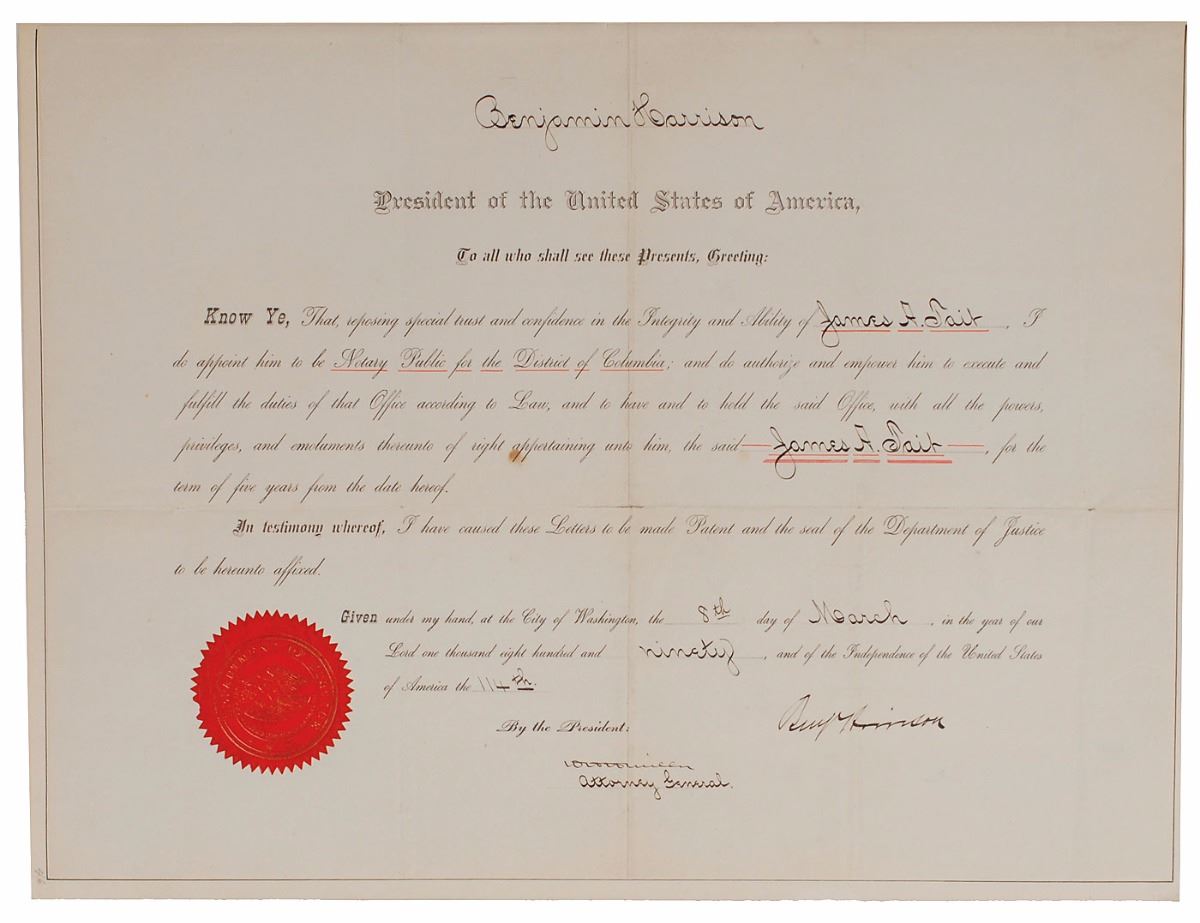 Benjamin Harrison
President of the United States of America,
To all who shall see these Presents, Greeting:
Know Ye, That, reposing special trust and confidence in the Integrity and Ability of James A. Tait, I
do appoint him to be Notary Public for the District of Columbia; and do authorize and empower him to execute and
fulfill the duties of that Office according to Law, and to have and to hold the said Office, with all the powers,
privileges, and emoluments thereunto of right appertaining unto him, the said James A. Tait, for the
term of five years from the date hereof.
In testimony whereof, I have caused these Letters to be made Patent and the seal of the Department of Justice
to be hereunto affixed.
Given under my hand, at the City of Washington, the 8th day of March, in the year of our
Lord one thousand eight hundred and ninety, and of the Independence of the United States
of America the 114th.
Benj Harrison
By the President:
Attorney General.